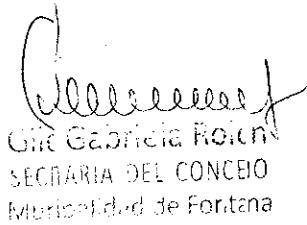 Gabriela
SECRTARIA DEL CONCEJO
Municipalidad de Fontana